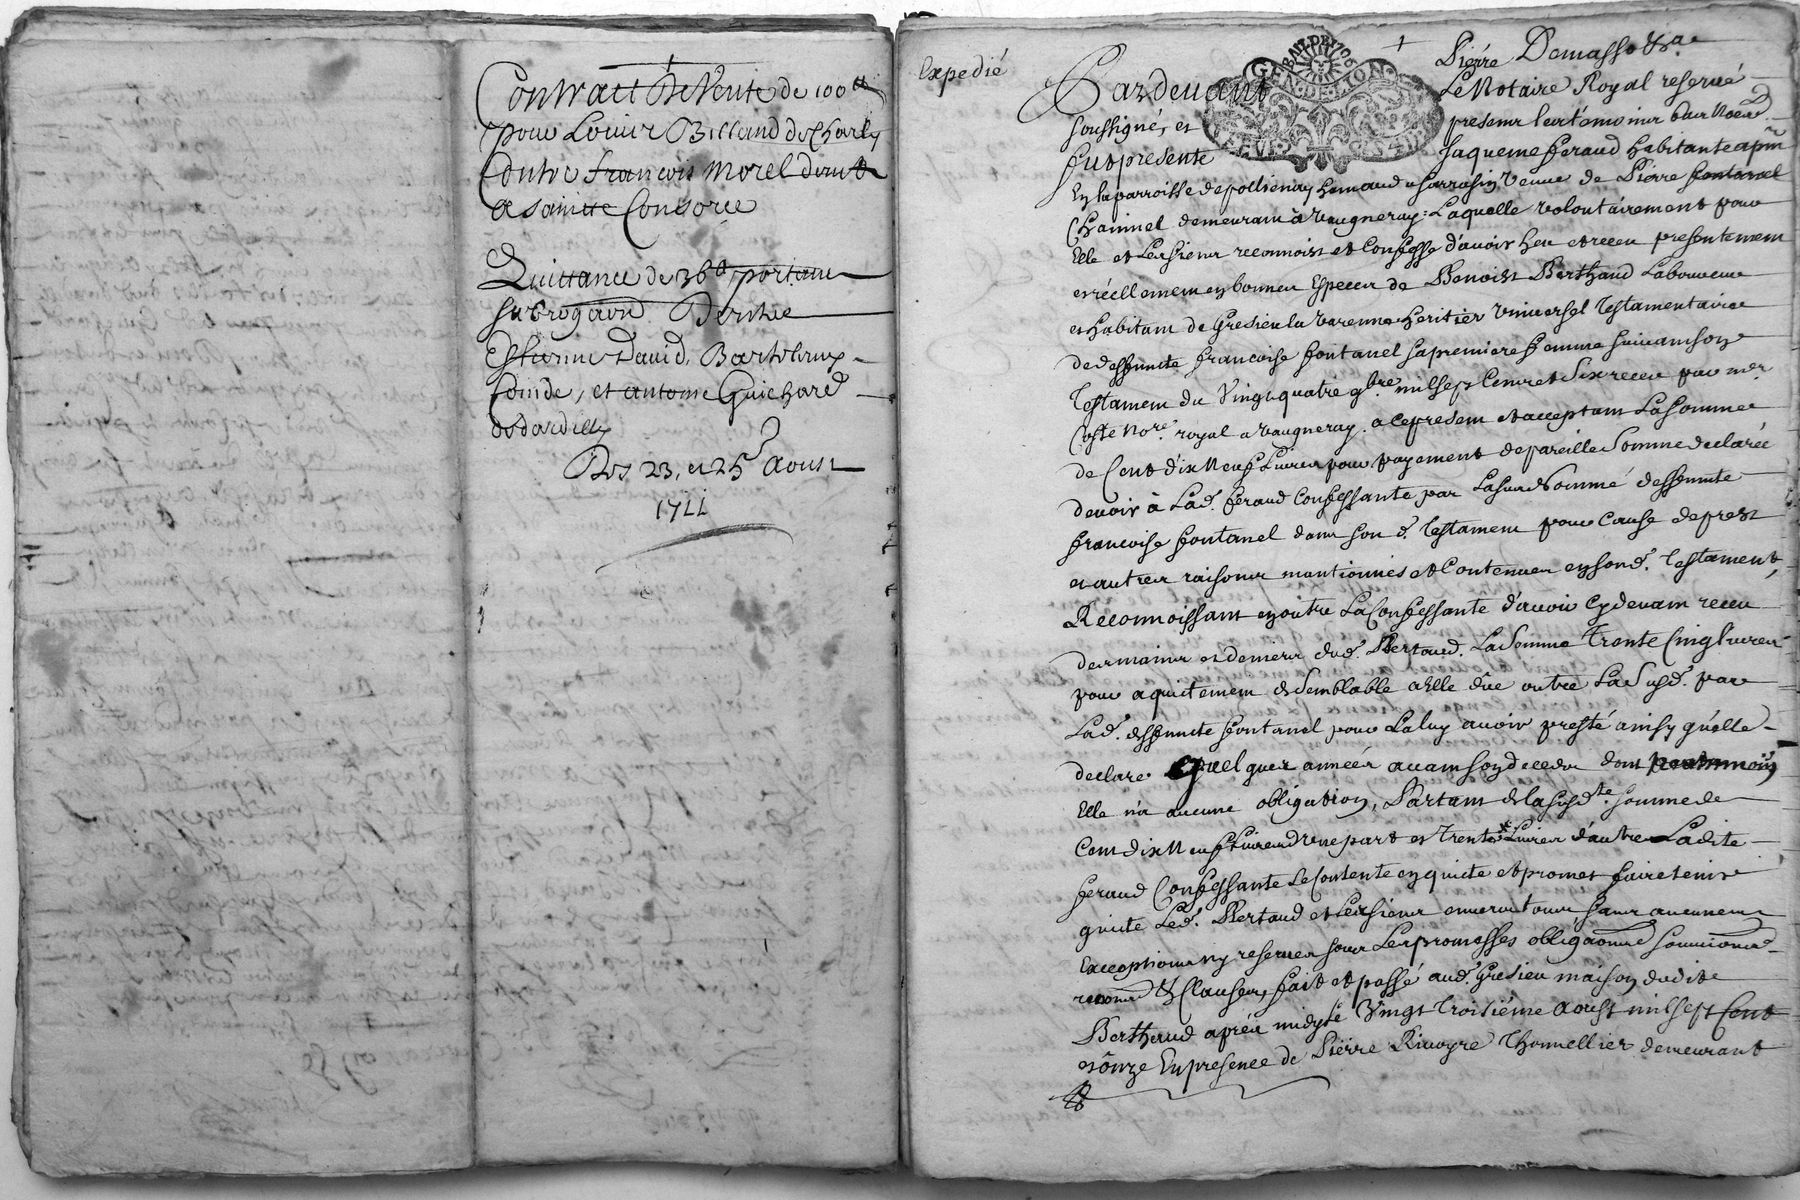 Contract De Vente de 100ᵗᵗ
pour Louis Billaud de Charly
Contre François Morel
a sainte Consorce
Quittance de 36ᵗᵗ portant
subrogãon
Estienne David, Bartelemy
et antoine Guichard
de dardilly
Des 23, et 25ᵉ Aoust
1711
Expedié
Pierre Demasso &ᵃ
Pardevant Le Notaire Royal reservé
soussigné, et presens les tesmoins bas nommés
fut presente Jaqueme feraud habitante
En la parroisse de pollienay veuve de Pierre fontanel
demeurant à vaugneray: Laquelle volontairement pour
Elle et Les siens reconnoist et Confesse d'avoir heu et receu presentement
et réellement en bonnes Especes de Benoist Berthaud Laboureur
et habitant de Gresieu la varenne heritier universel Testamentaire
de deffuncte francoise fontanel sa premiere femme suivant son
Testament du Vingt quatre 9bre milsept Cent et Six receu par mᵉ
Coste noʳᵉ royal a vaugneray. a ce present et acceptant La somme
de Cent dix Neuf Livres pour payement de pareille Somme declarée
devoir à Lad. feraud Confessante par La surnommé deffuncte
francoise fontanel dans son d. Testament pour Cause de prest
et autres raisons mantionnés et Contenues en son d. Testament,
Reconnoissant en outre La Confessante d'avoir Cy devant receu
des mains et deniers dud. Bertaud. La somme Trente Cinq Livres
pour aquitement de Semblable a Elle düe outre La Susd. par
Lad. deffuncte fontanel pour La luy avoir presté ainsy qu'elle
declare quelques années avant son deceds dont
Elle n'a aucune obligation, Partant de la susdᵗᵉ somme de
Cent dix Neuf Livres d'Une part et trente Livres d'autre Ladite
feraud Confessante Se Contente en quicte et promet faire tenir
quicte Led. Bertaud et Les siens envers tous sans aucunes
Exceptions ny reserves sous Les promesses obligãons soumions
renonõns & Clauses, fait et passé aud. Gresieu maison dudit
Berthaud aprés midy le Vingt Troisiéme aoust mil sept Cent
et onze En presence de Pierre Rivoyre Thonnellier demeurant